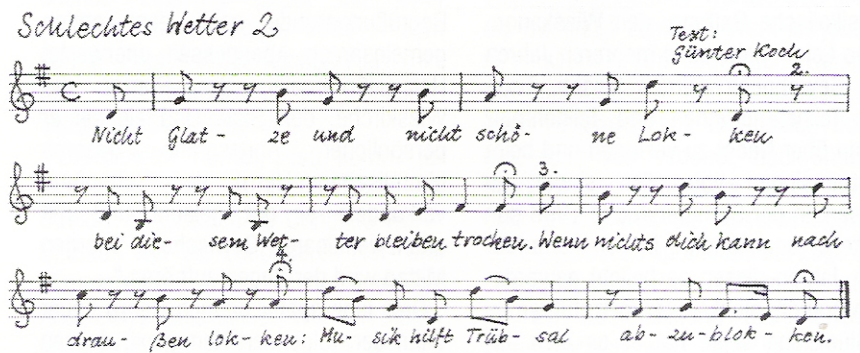 Schlechtes Wetter 2
Text:
Günter Koch
2.
Nicht Glat - ze und nicht schö - ne Lok - ken
3.
bei die - sem Wet - ter bleiben trocken. Wenn nichts dich kann nach
4.
drau - ßen lok - ken: Mu - sik hilft Trüb - sal ab - zu - blok - ken.